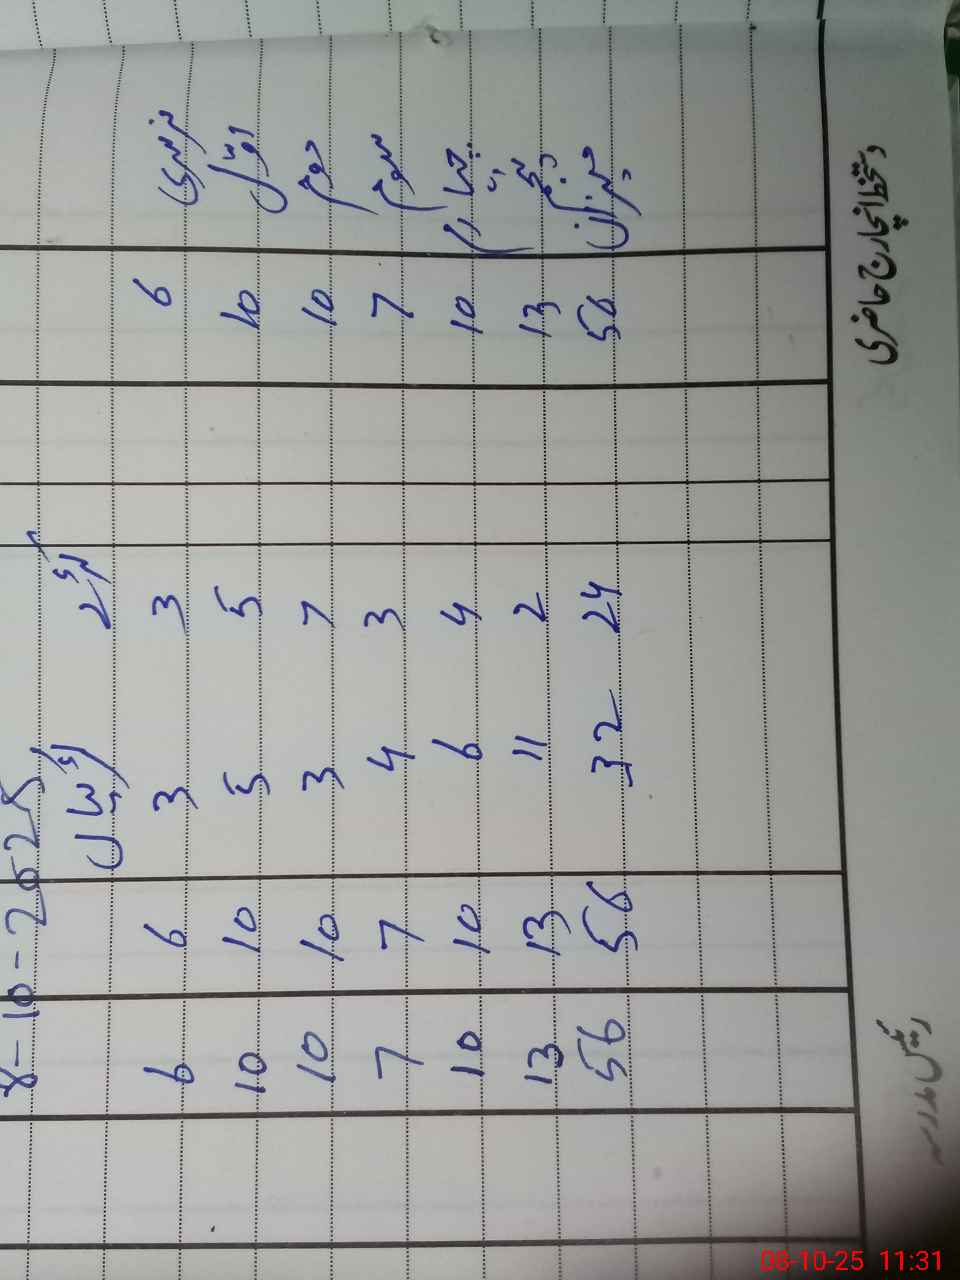 8-10-2025
لڑکے لڑکیاں
نرسری 6 3 3 6 6
اوّل 10 5 5 10 10
دوم 10 7 3 10 10
سوم 7 3 4 7 7
چہارم 10 4 6 10 10
پنجم 13 2 11 13 13
میزان 56 24 32 56 56
دستخط انچارج حاضری رئیس مدرسہ
08-10-25 11:31